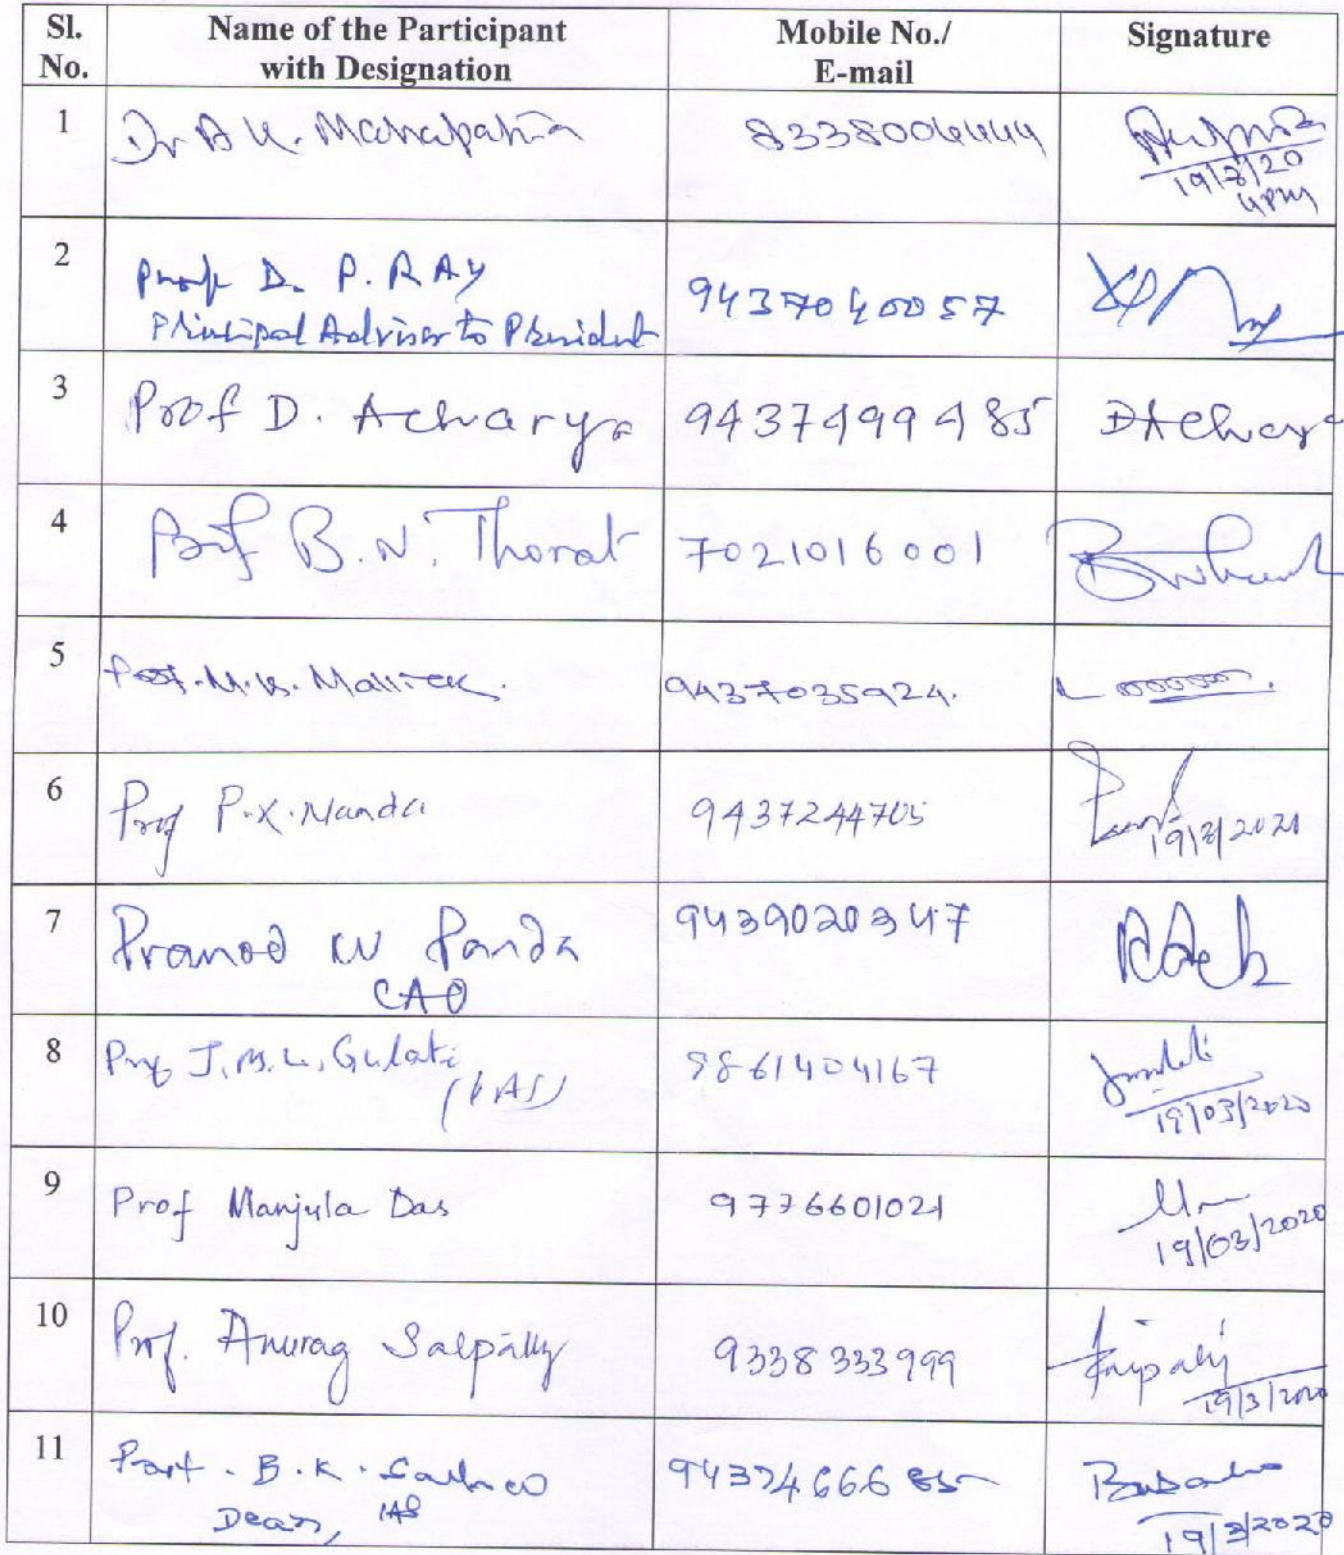 Sl. No. Name of the Participant with Designation Mobile No./ E-mail Signature
1 Dr A K. Mahapatra 8338006444 19/3/20 4PM
2 Prof D. P. RAY 9437040057
Principal Advisor to President
3 Prof D. Acharya 9437499485 DAcharya
4 Prof B.N. Thorat 7021016001
5 Prof. M.K. Mallick. 9437035924.
6 Prof P.K. Nanda 9437244705 19/3/2020
7 Pramod K Panda 9439020347
CAO
8 Prof J.M.L. Gulati 9861404167 19/03/2020
(IAS)
9 Prof Manjula Das 9776601021 19/03/2020
10 Prof. Anurag Satpathy 9338333999 19/3/2020
11 Prof. B.K. Sahoo 9437466685 19/3/2020
Dean, IAS